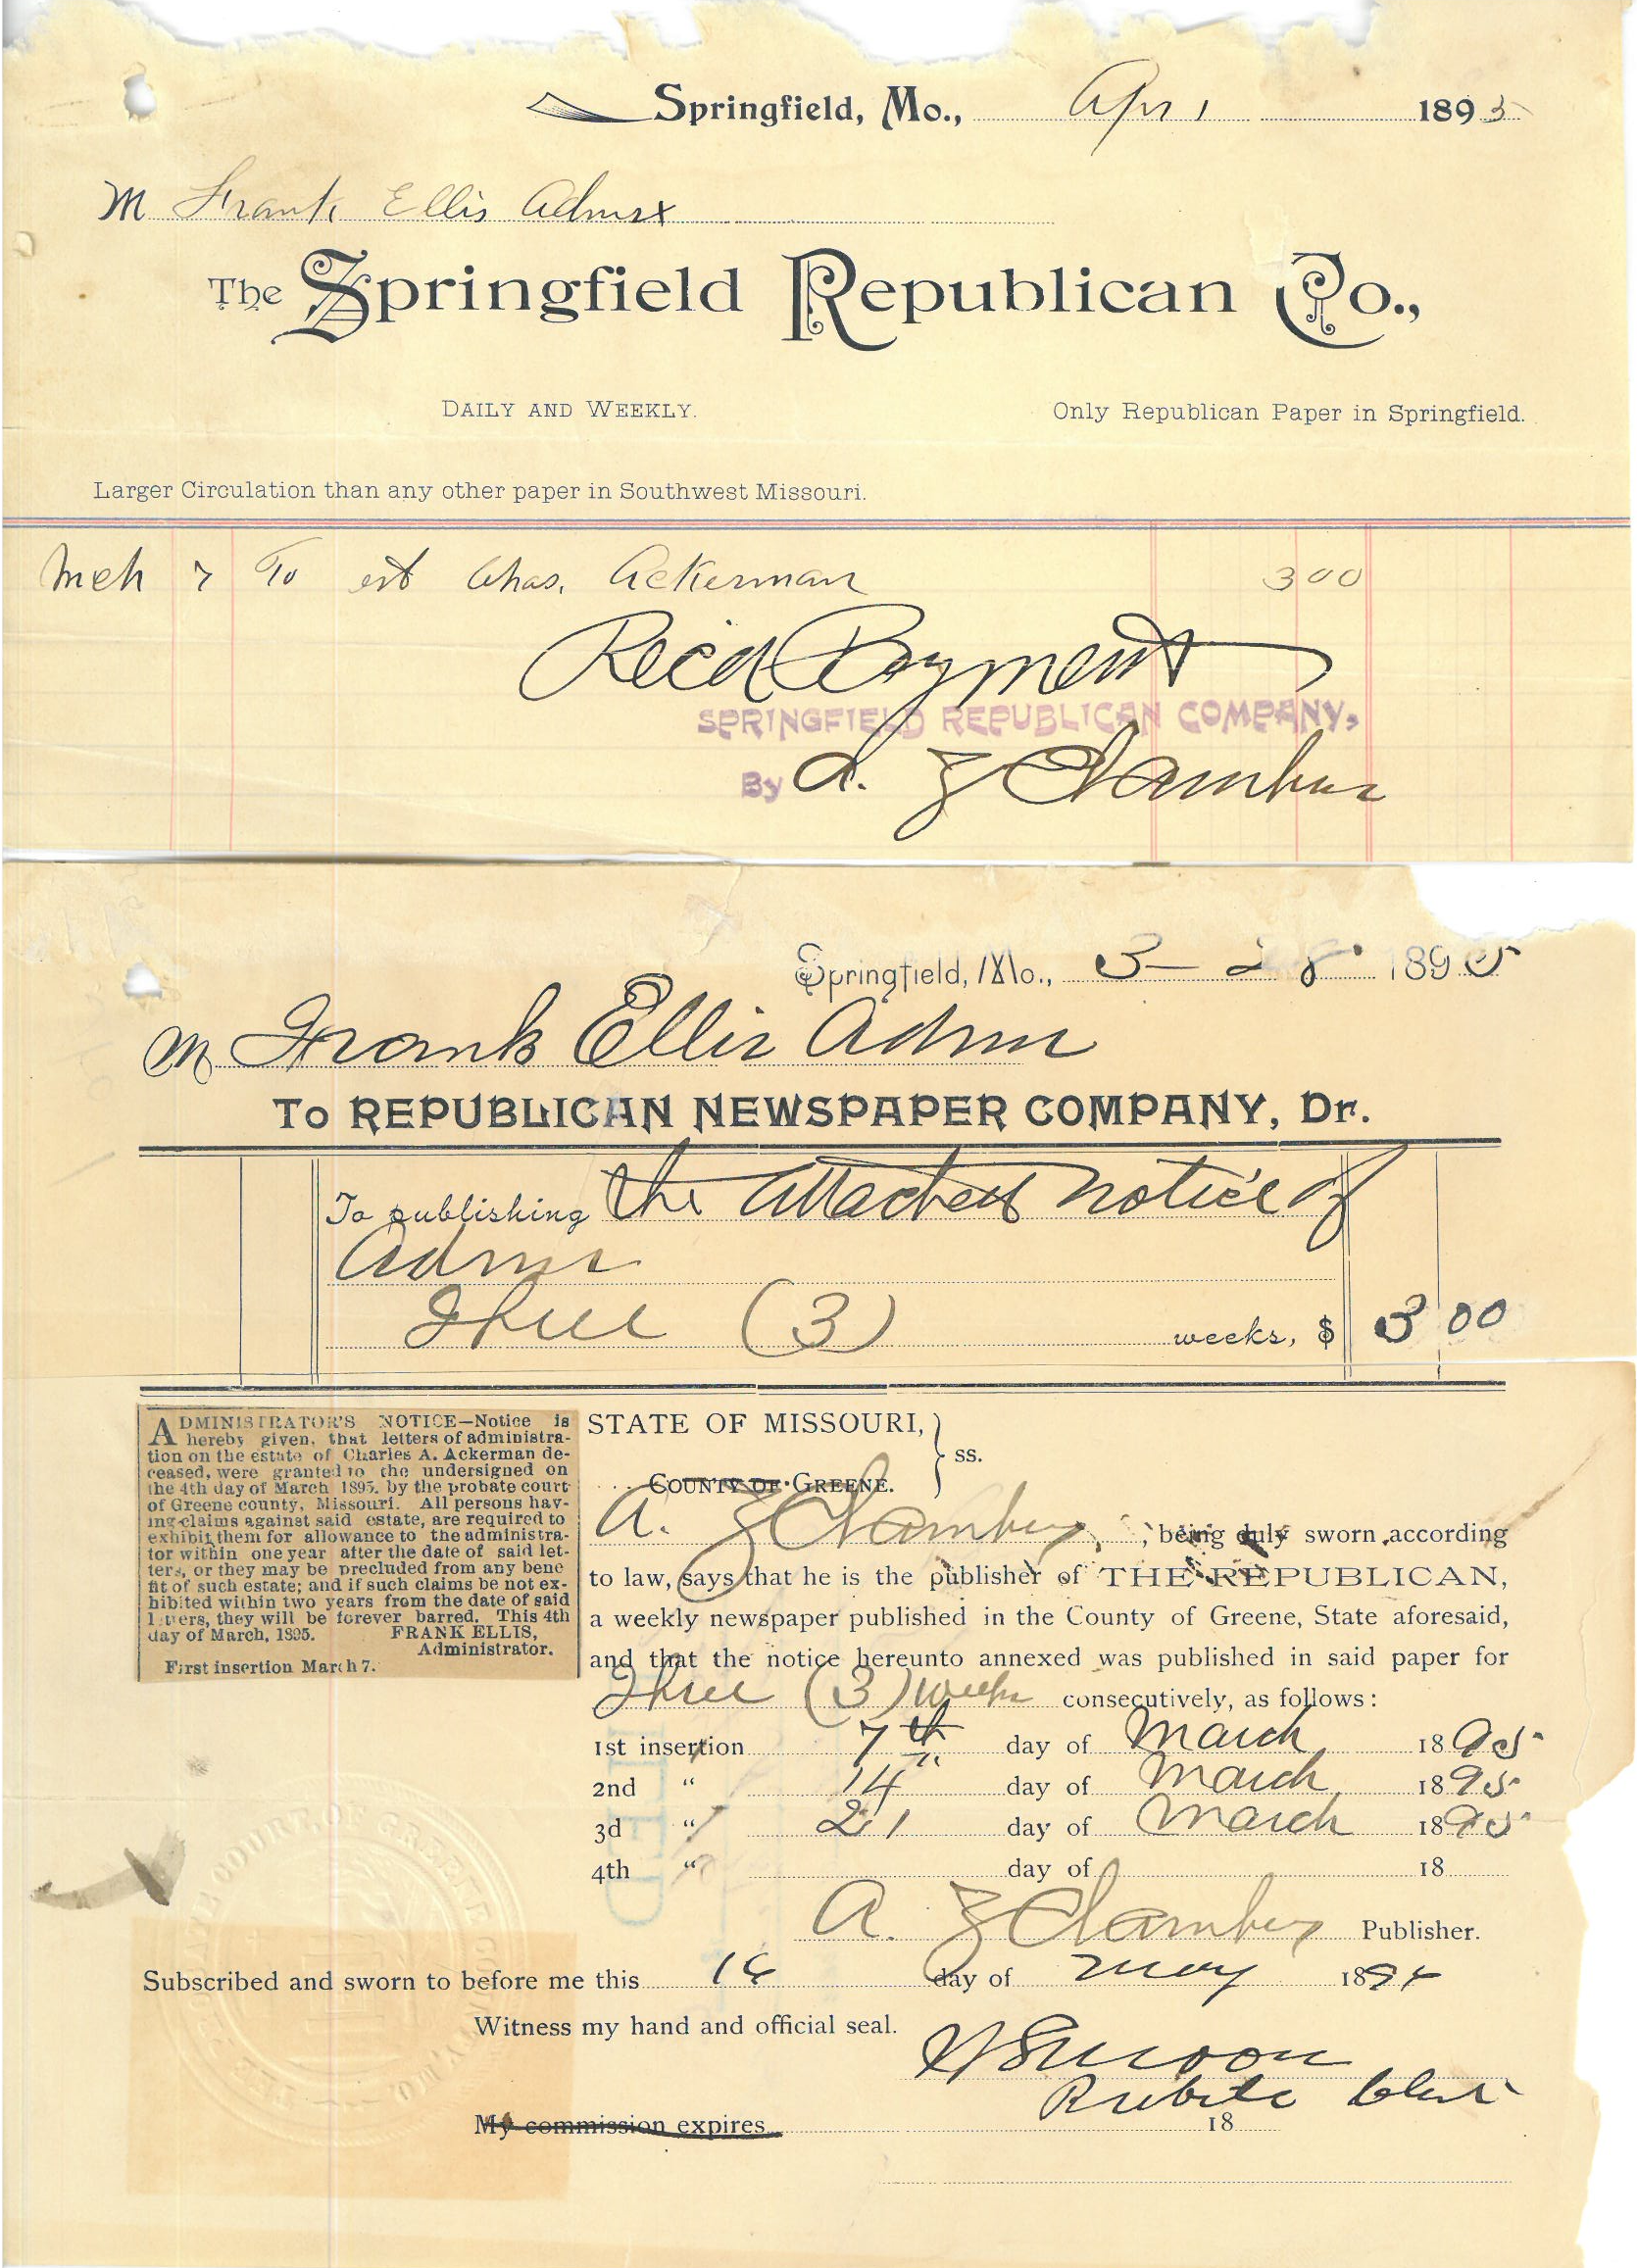 Springfield, Mo., Apr 1 1895
M Frank Ellis Admrx
The Springfield Republican Co.,
DAILY AND WEEKLY. Only Republican Paper in Springfield.
Larger Circulation than any other paper in Southwest Missouri.
Mch 7 To est Chas. Ackerman 3 00
Recd Payment
SPRINGFIELD REPUBLICAN COMPANY,
By A. Z Chambers
Springfield, Mo., 3-28 1895
M Frank Ellis Admr
To REPUBLICAN NEWSPAPER COMPANY, Dr.
To publishing the attached notice of
Admr
Three (3) weeks, $ 3 00
ADMINISTRATOR'S NOTICE—Notice is
hereby given, that letters of administra-
tion on the estate of Charles A. Ackerman de-
ceased, were granted to the undersigned on
the 4th day of March 1895, by the probate court
of Greene county, Missouri. All persons hav-
ing claims against said estate, are required to
exhibit them for allowance to the administra-
tor within one year after the date of said let-
ters, or they may be precluded from any bene
fit of such estate; and if such claims be not ex-
hibited within two years from the date of said
letters, they will be forever barred. This 4th
day of March, 1895. FRANK ELLIS,
Administrator.
First insertion March 7.
STATE OF MISSOURI, } ss.
COUNTY OF GREENE.
A. Z Chambers, being duly sworn according
to law, says that he is the publisher of THE REPUBLICAN,
a weekly newspaper published in the County of Greene, State aforesaid,
and that the notice hereunto annexed was published in said paper for
Three (3) weeks consecutively, as follows:
1st insertion 7th day of March 1895
2nd " 14" day of March 1895
3d " 21 day of March 1895
4th " day of 18
A. Z Chambers Publisher.
Subscribed and sworn to before me this 16 day of May 189
Witness my hand and official seal.
Probate Clerk
My commission expires 18
FILED
PROBATE COURT OF GREENE COUNTY, MO.